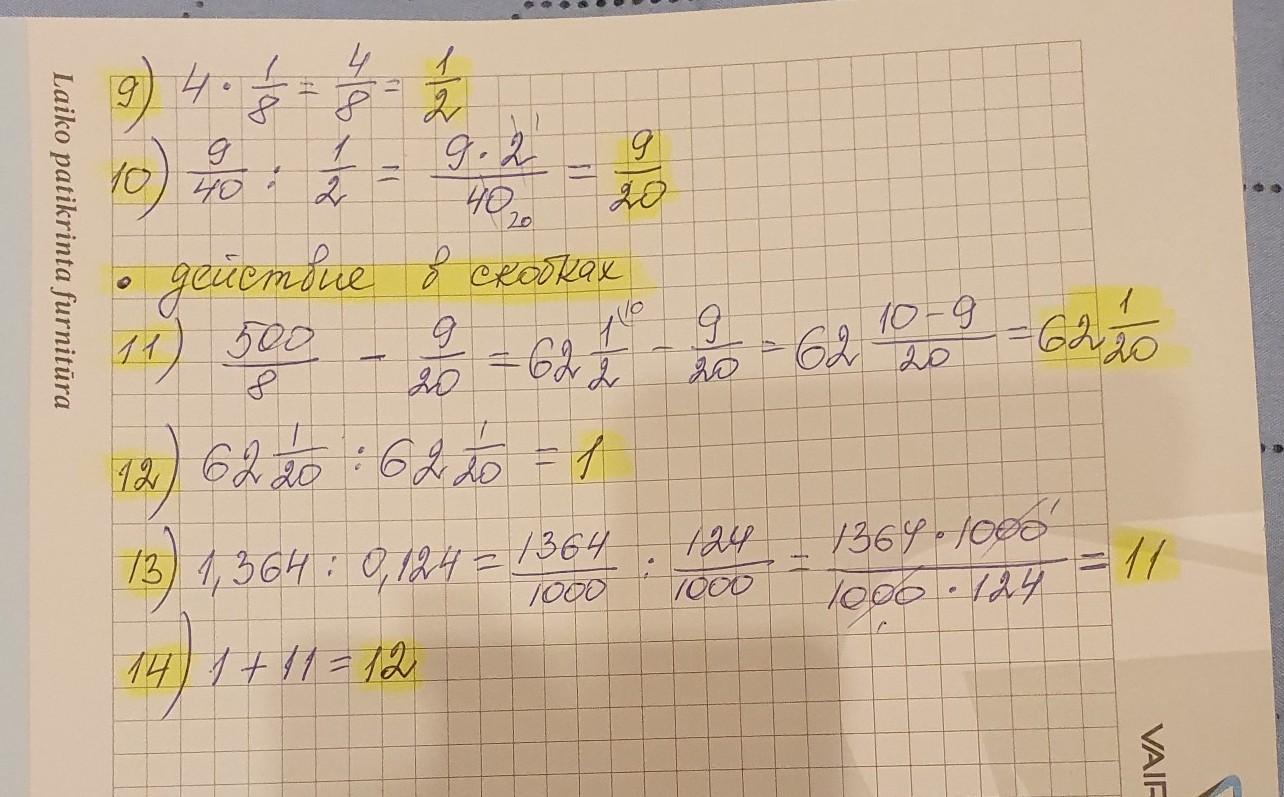 Laiko patikrinta furnitūra
9) 4 · 1/8 = 4/8 = 1/2
10) 9/40 : 1/2 = 9 · 2 1 / 40 20 = 9/20
• действие в скобках
11) 500/8 - 9/20 = 62 1/2 (10 - 9/20 = 62 10-9/20 = 62 1/20
12) 62 1/20 : 62 1/20 = 1
13) 1,364 : 0,124 = 1364/1000 : 124/1000 = 1364 · 1000 1 / 1000 1 · 124 = 11
14) 1 + 11 = 12